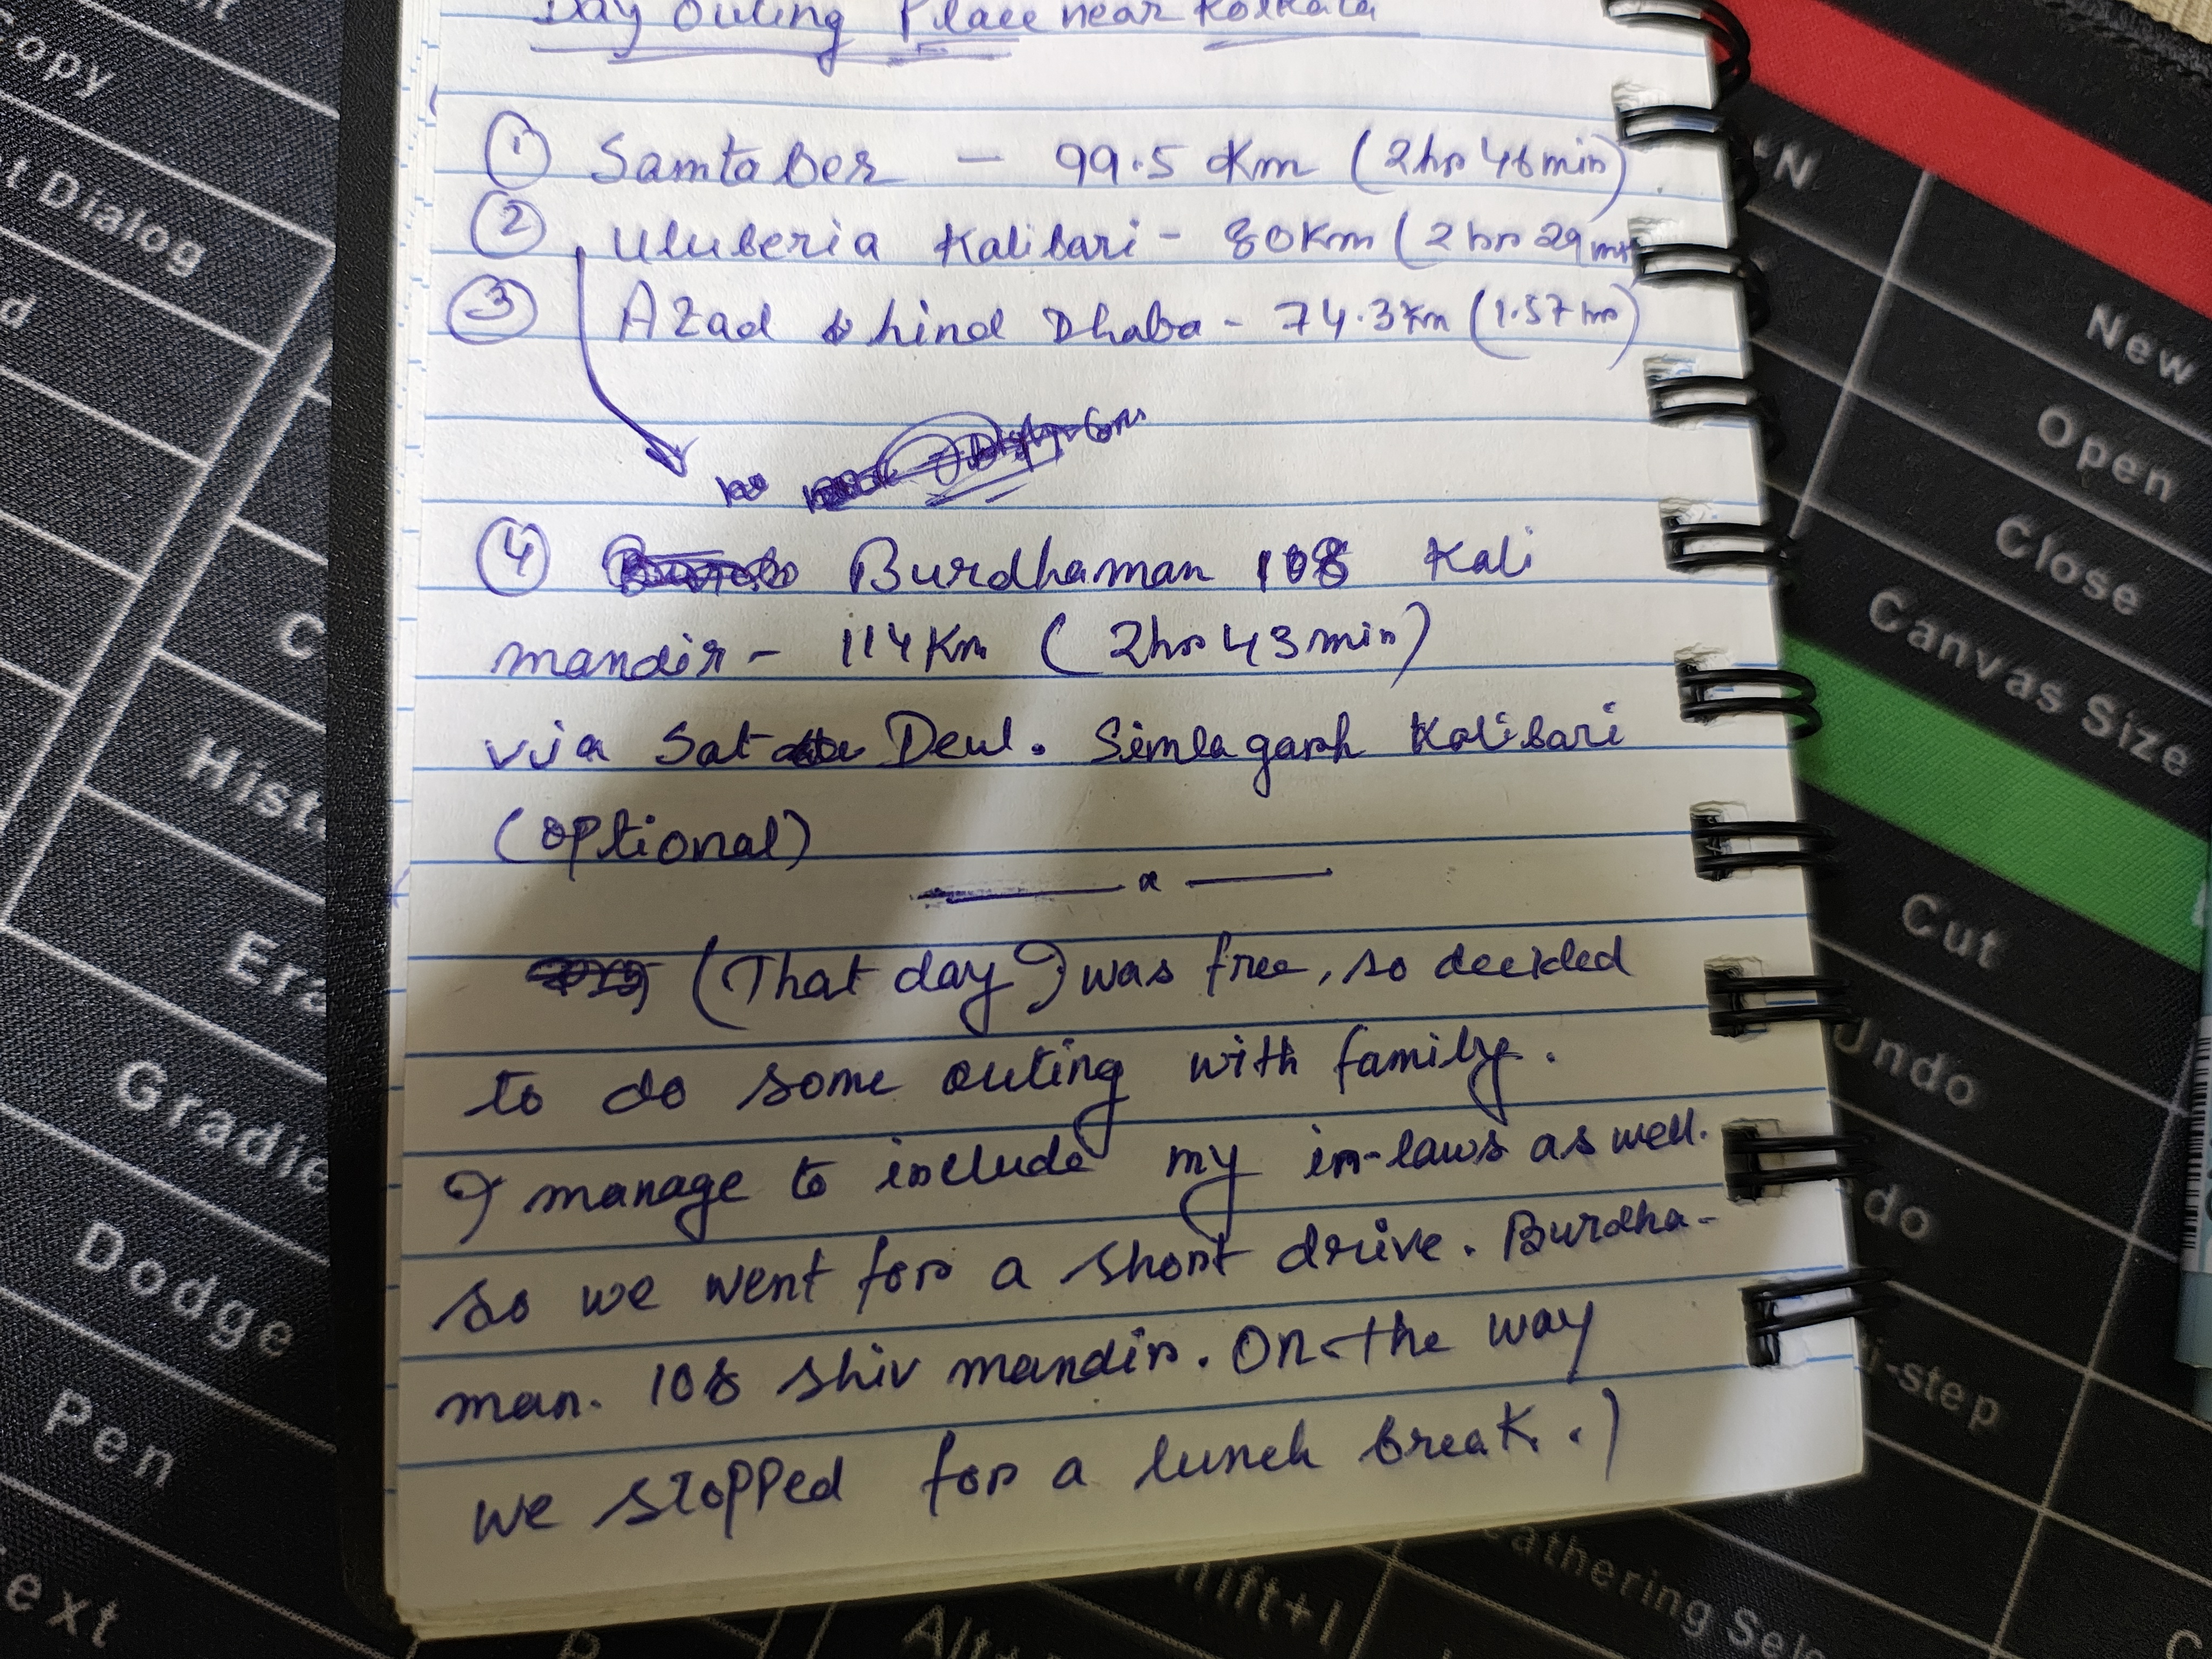 Day Outing Place near Kolkata
① Samtaber - 99.5 Km (2hrs 46min)
② Uluberia Kalibari - 80Km (2 hrs 29
③ Azad hind Dhaba - 74.3Km (1.57 hrs)
④ Burdhaman 108 Kali
mandir - 114Km (2hrs 43min)
via Sat Deul. Simlagarh Kalibari
(optional)
x
(That day I was free, so decided
to do some outing with family.
I manage to include my in-laws as well.
So we went for a short drive. Burdha-
man. 108 Shiv mandir. On the way
we stopped for a lunch break.)
opy
t Dialog
d
C
Hist
Era
Gradie
Dodge
Pen
ext
+N
New
Open
Close
Canvas Size
Cut
Undo
do
ti-step
athering Sele
hift+I
Alt+